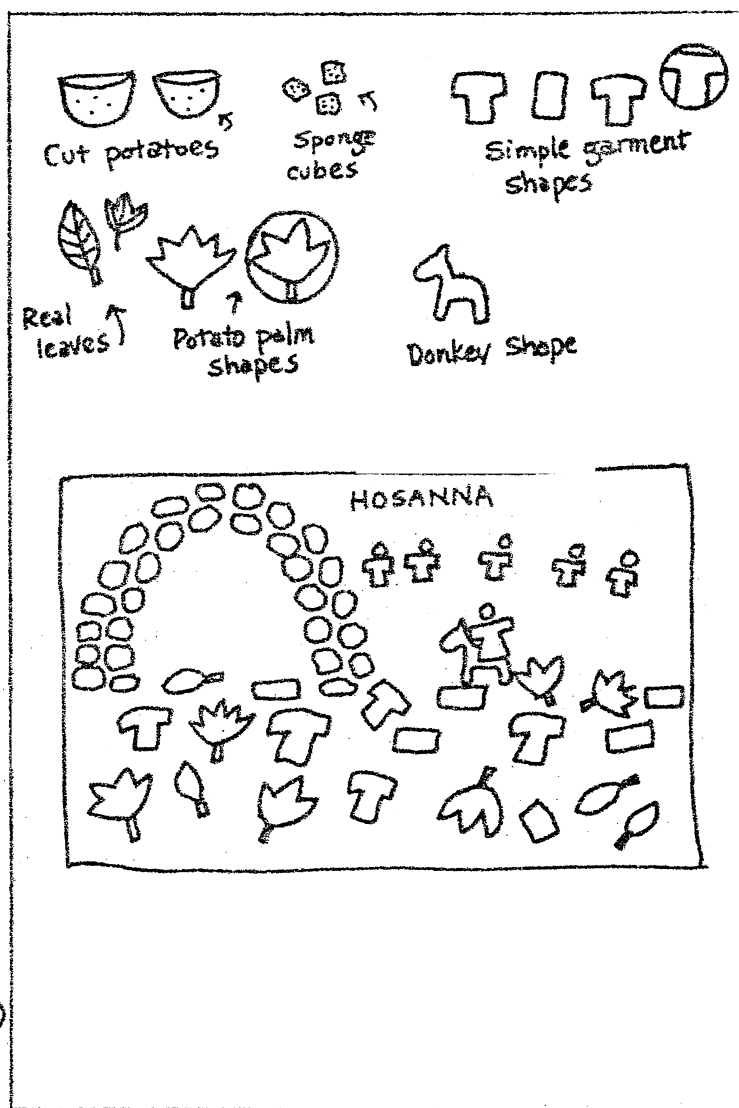 Cut potatoes
Sponge
cubes
Simple garment
shapes
Real
leaves
Potato palm
shapes
Donkey Shape
HOSANNA